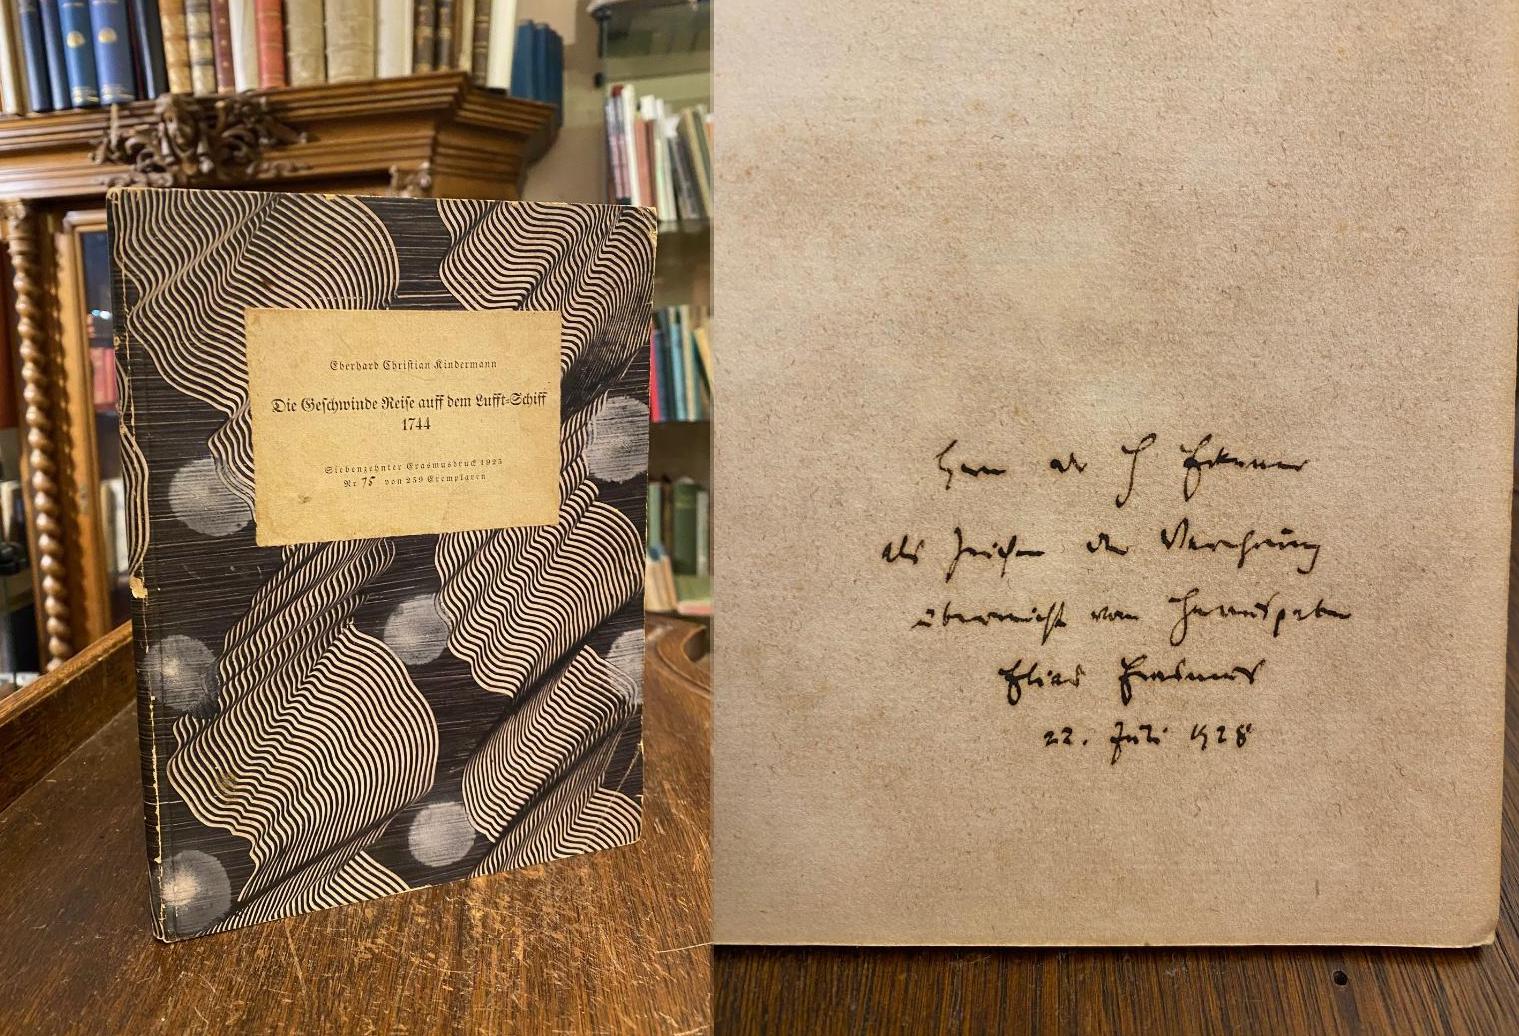 Eberhard Christian Kindermann
Die Geschwinde Reise auff dem Lufft=Schiff
1744
Siebenzehnter Erasmusdruck 1923
Nr 75 von 259 Exemplaren
Herrn
als Zeichen der Verehrung
überreicht vom Herausgeber
Elias Erasmus
22. Juli 1928